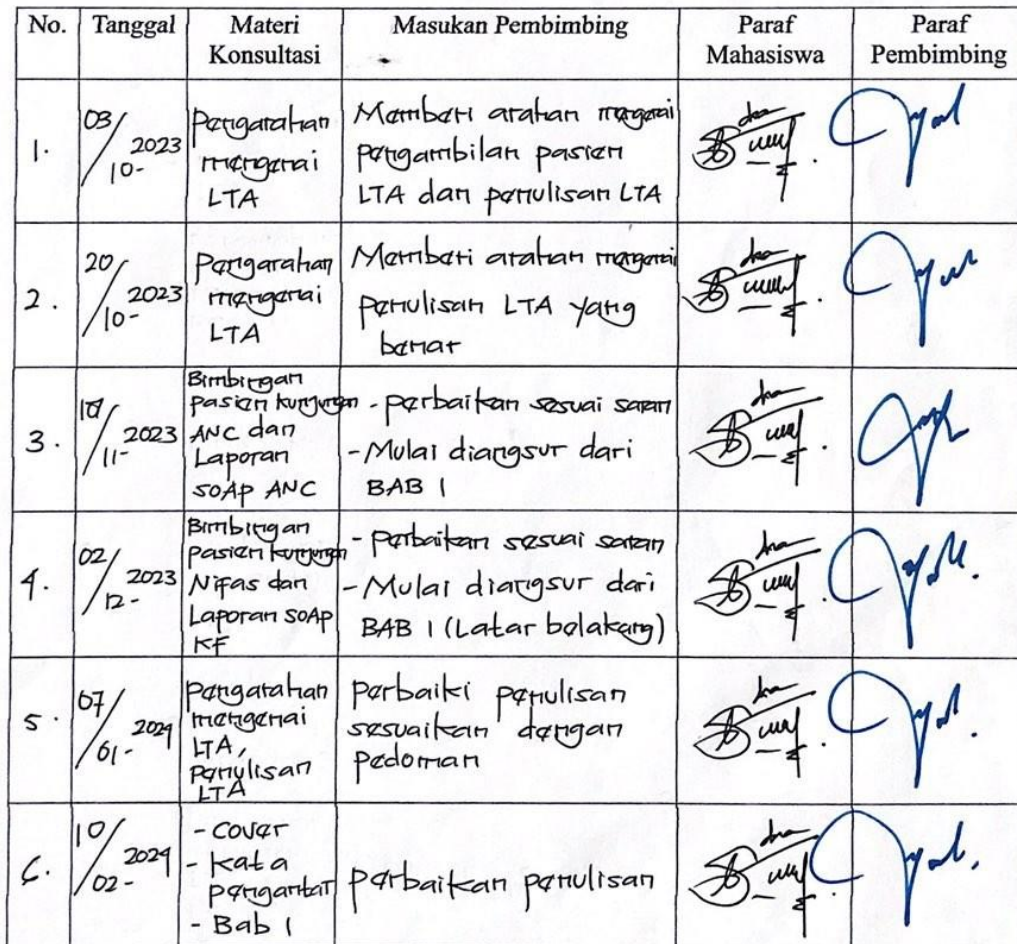 No. Tanggal Materi Konsultasi Masukan Pembimbing Paraf Mahasiswa Paraf Pembimbing
1. 03/10-2023
Pengarahan
mengenai
LTA
Memberi arahan mengenai
pengambilan pasien
LTA dan penulisan LTA
2. 20/10-2023
Pengarahan
mengenai
LTA
Memberi arahan mengenai
penulisan LTA yang
benar
3. /11-2023
Bimbingan
pasien kunjungan
ANC dan
Laporan
SOAP ANC
- perbaikan sesuai saran
- Mulai diangsur dari
BAB 1
4. 02/12-2023
Bimbingan
pasien kunjungan
Nifas dan
Laporan SOAP
KF
- perbaikan sesuai saran
- Mulai diangsur dari
BAB 1 (Latar belakang)
5. 07/01-2024
Pengarahan
mengenai
LTA,
penulisan
LTA
perbaiki penulisan
sesuaikan dengan
pedoman
6. 10/02-2024
- cover
- kata
pengantar
- Bab 1
perbaikan penulisan